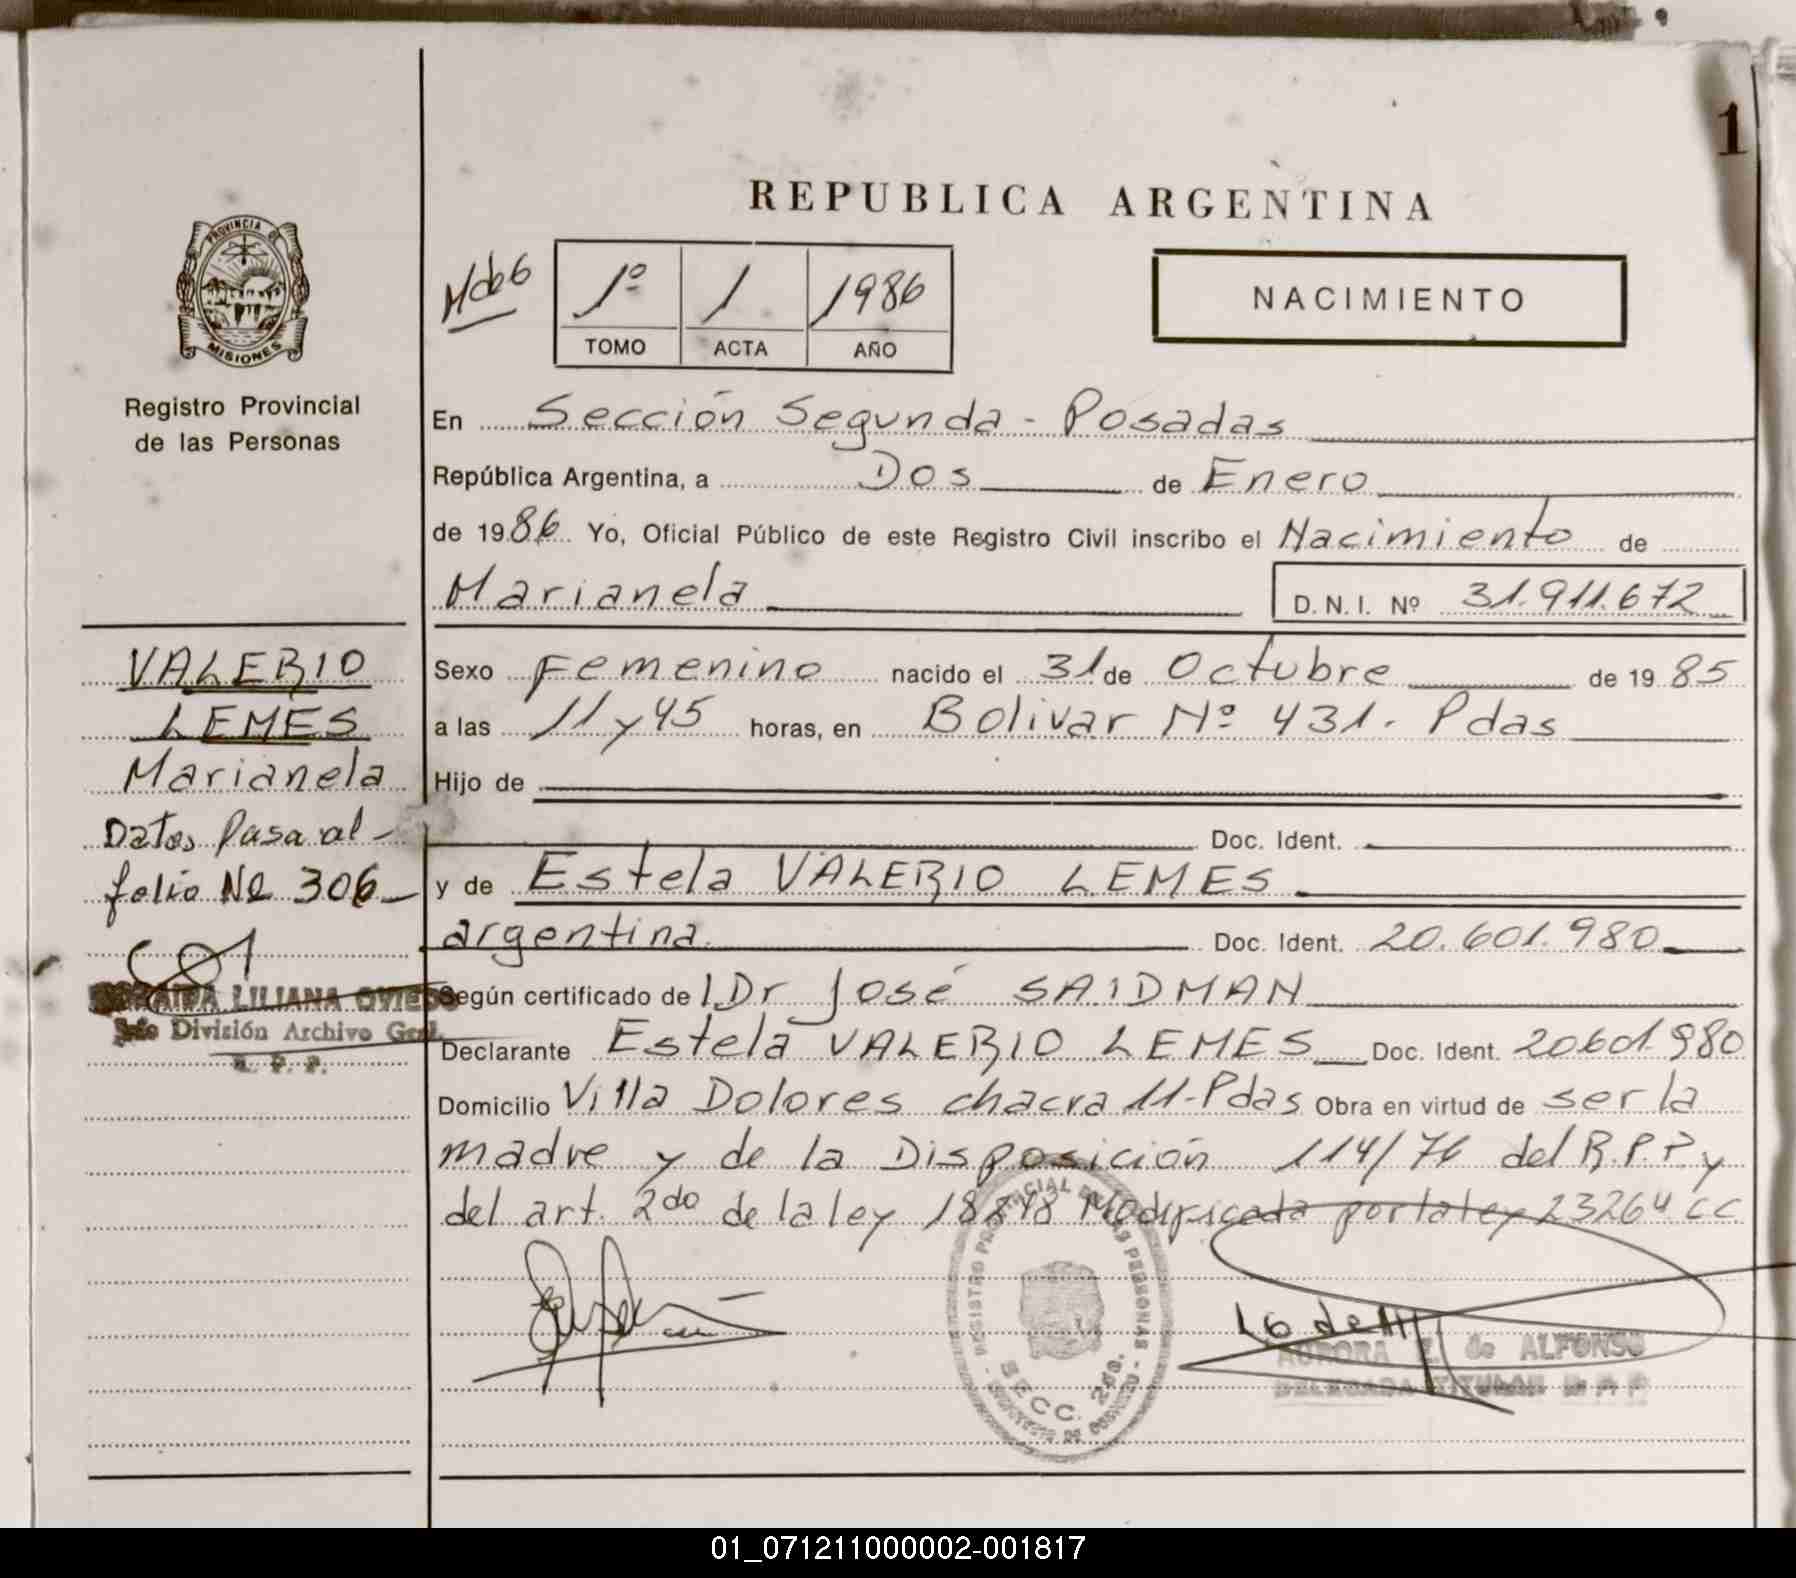 1
REPUBLICA ARGENTINA
PROVINCIA DE
MISIONES
Registro Provincial
de las Personas
1º 1 1986
TOMO ACTA AÑO
NACIMIENTO
En Sección Segunda - Posadas
República Argentina, a Dos de Enero
de 1986 Yo, Oficial Público de este Registro Civil inscribo el Nacimiento de
Marianela D.N.I. Nº 31.911.672
VALERIO
LEMES
Marianela
Datos Pasa al
folio Nº 306
LILIANA OVIEDO
División Archivo Gral.
R. P. P.
Sexo Femenino nacido el 31 de Octubre de 1985
a las 11 y 45 horas, en Bolivar Nº 431 - Pdas
Hijo de
Doc. Ident.
y de Estela VALERIO LEMES
argentina Doc. Ident. 20.601.980
Según certificado de Dr José SAIDMAN
Declarante Estela VALERIO LEMES Doc. Ident. 20601980
Domicilio Villa Dolores chacra 11-Pdas Obra en virtud de ser la
madre y de la Disposición 114/76 del R.P.P. y
del art. 2do de la ley 18248 Modificada por la ley 23264 CC
REGISTRO PROVINCIAL DE LAS PERSONAS
SECC. 2da.
AURORA de ALFONSO
DELEGADA TITULAR R P P
01_071211000002-001817